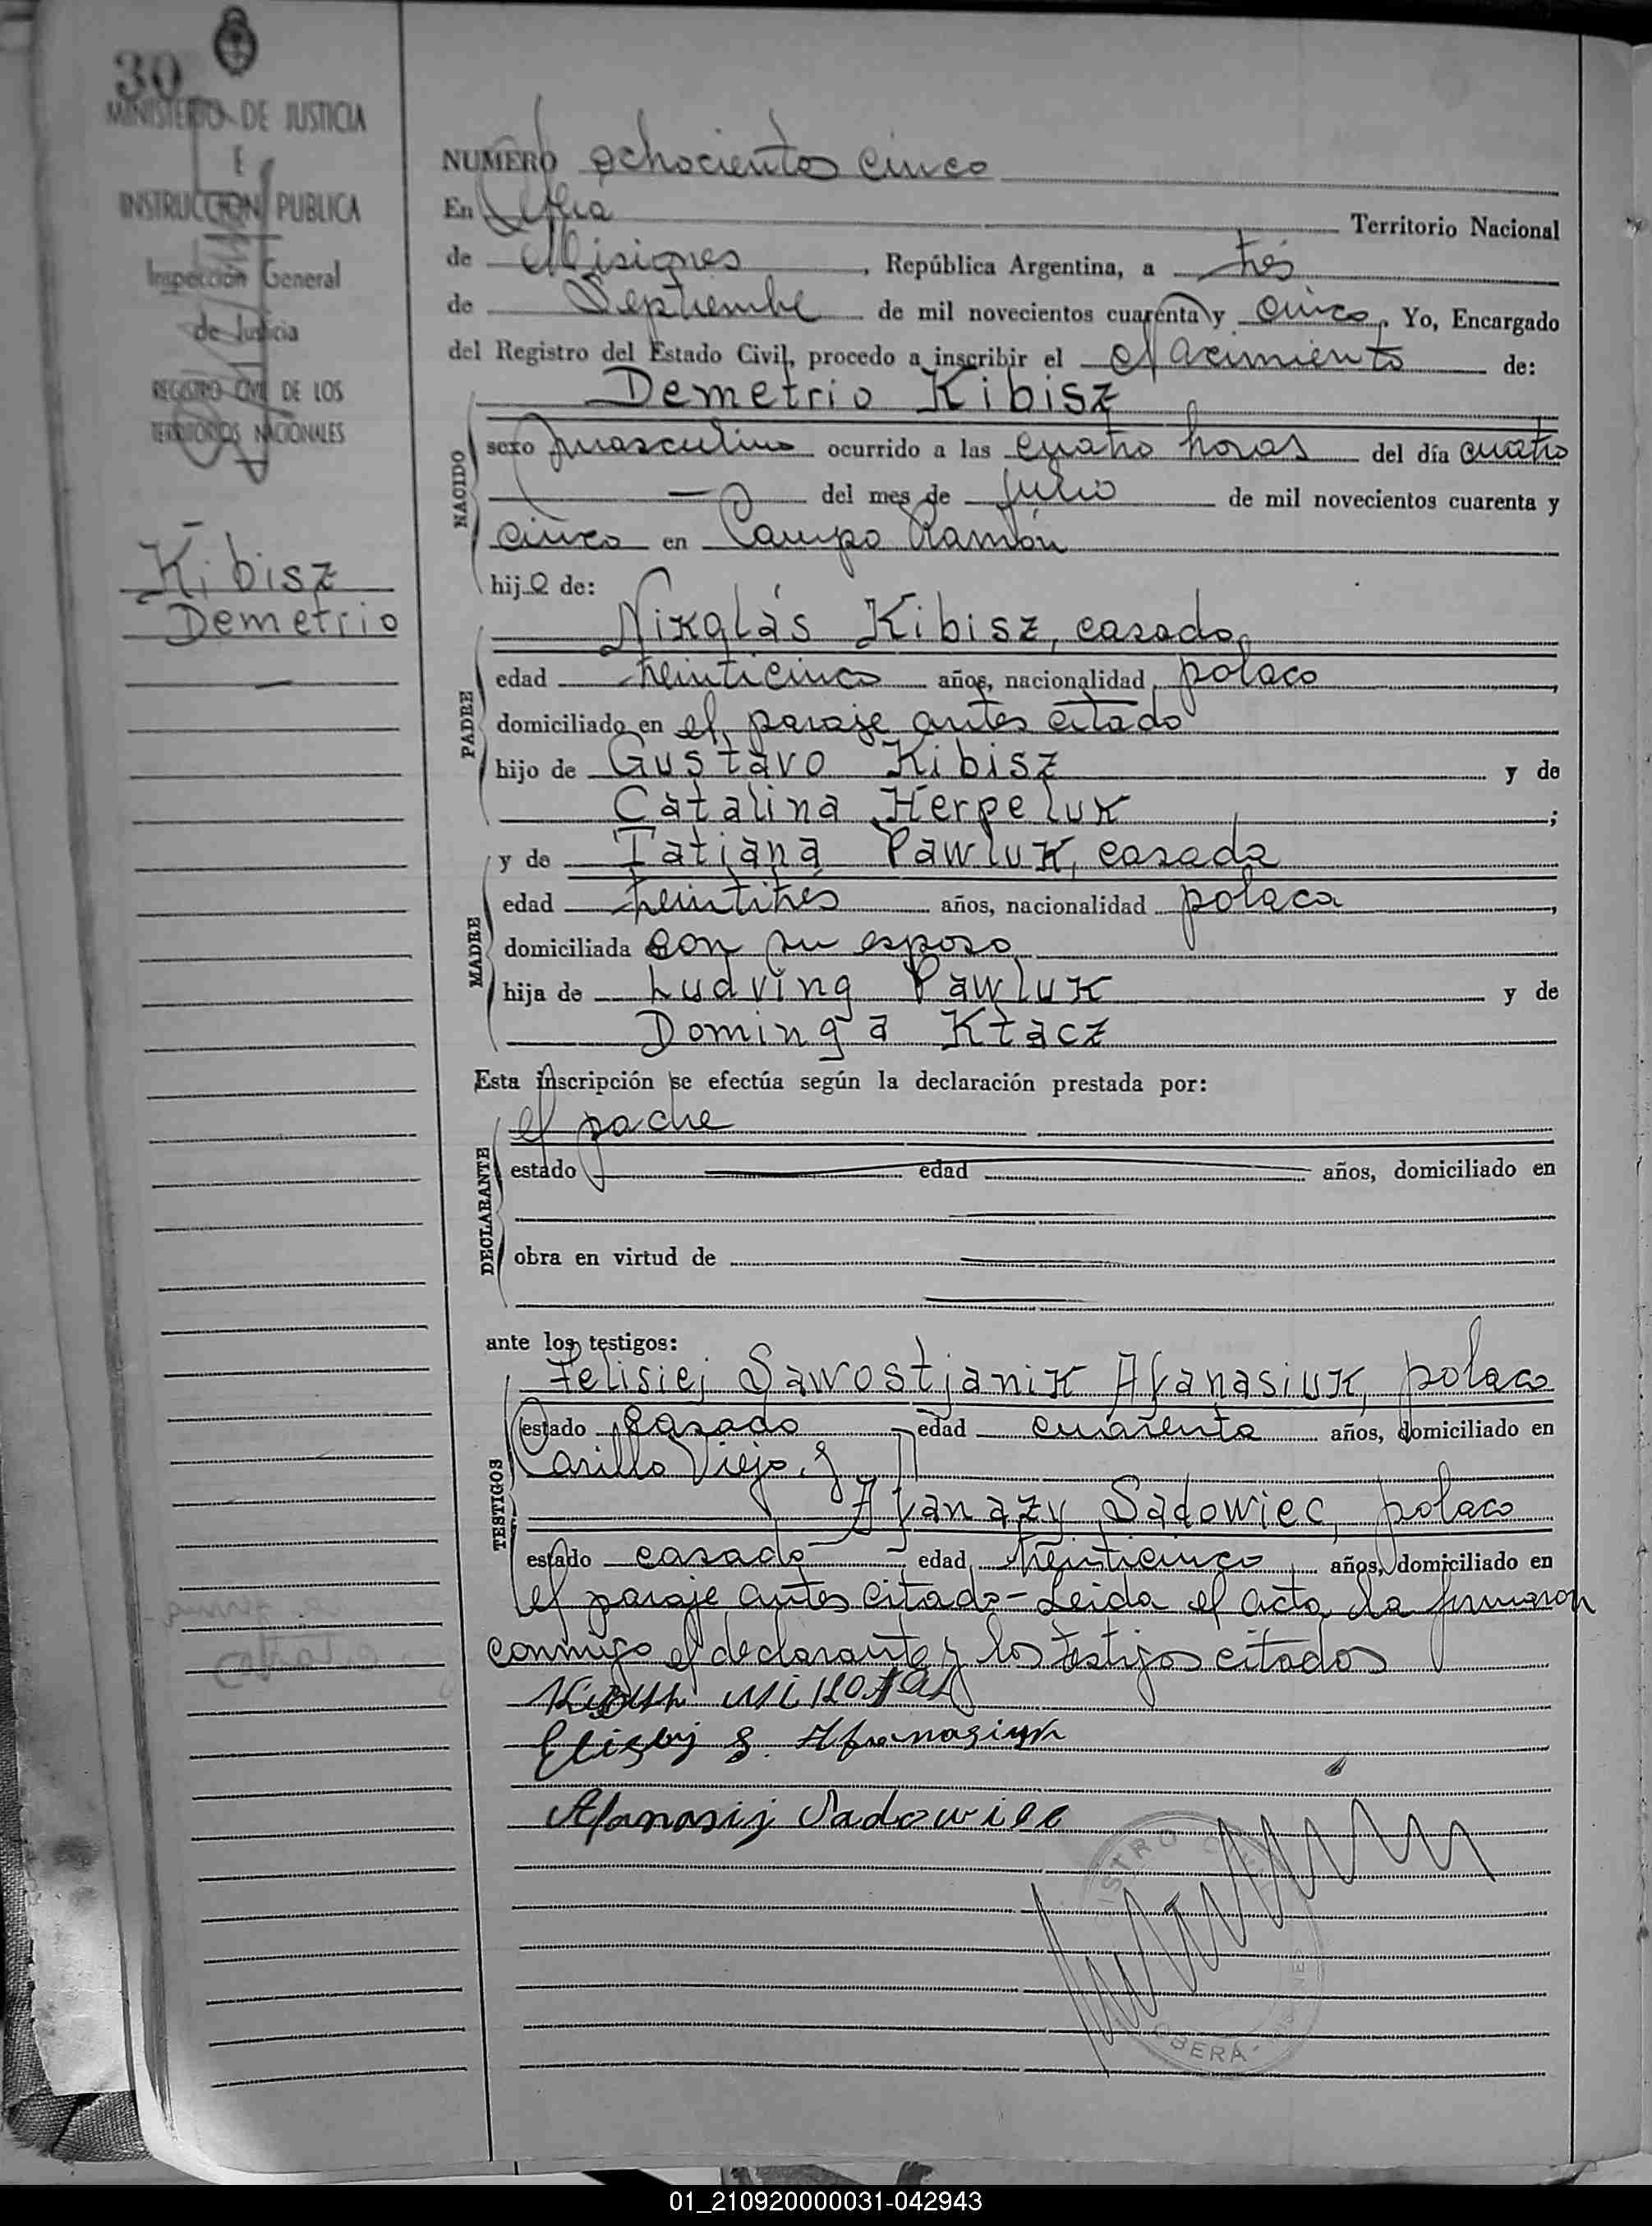 30
MINISTERIO DE JUSTICIA
E
INSTRUCCION PUBLICA
Inspección General
de Justicia
REGISTRO CIVIL DE LOS
TERRITORIOS NACIONALES
Kibisz
Demetrio
NUMERO ochocientos cinco
En Territorio Nacional
de Misiones, República Argentina, a tres
de Septiembre de mil novecientos cuarenta y cinco, Yo, Encargado
del Registro del Estado Civil, procedo a inscribir el Nacimiento de:
Demetrio Kibisz
NACIDO
sexo masculino ocurrido a las cuatro horas del día cuatro
— del mes de Julio de mil novecientos cuarenta y
cinco en Campo Ramón
hijo de:
Nikolás Kibisz, casado,
PADRE
edad treinticinco años, nacionalidad polaco,
domiciliado en el paraje antes citado
hijo de Gustavo Kibisz y de
Catalina Herpeluk;
y de Tatiana Pawluk, casada
MADRE
edad treintitrés años, nacionalidad polaca,
domiciliada con su esposo
hija de Ludving Pawluk y de
Dominga Ktacz
Esta inscripción se efectúa según la declaración prestada por:
el padre
DECLARANTE
estado edad años, domiciliado en
obra en virtud de
ante los testigos:
Felisiej Sawostjanik Afanasiuk, polaco
TESTIGOS
estado casado edad cuarenta años, domiciliado en
Carillo Viejo. y
Afanazy Sadowiec, polaco
estado casado edad treinticinco años, domiciliado en
el paraje antes citado - Leida el acta, la firmaron
conmigo el declarante y los testigos citados
S. Afanasiuk
Afanasij Sadowiec
OBERÁ
01_210920000031-042943